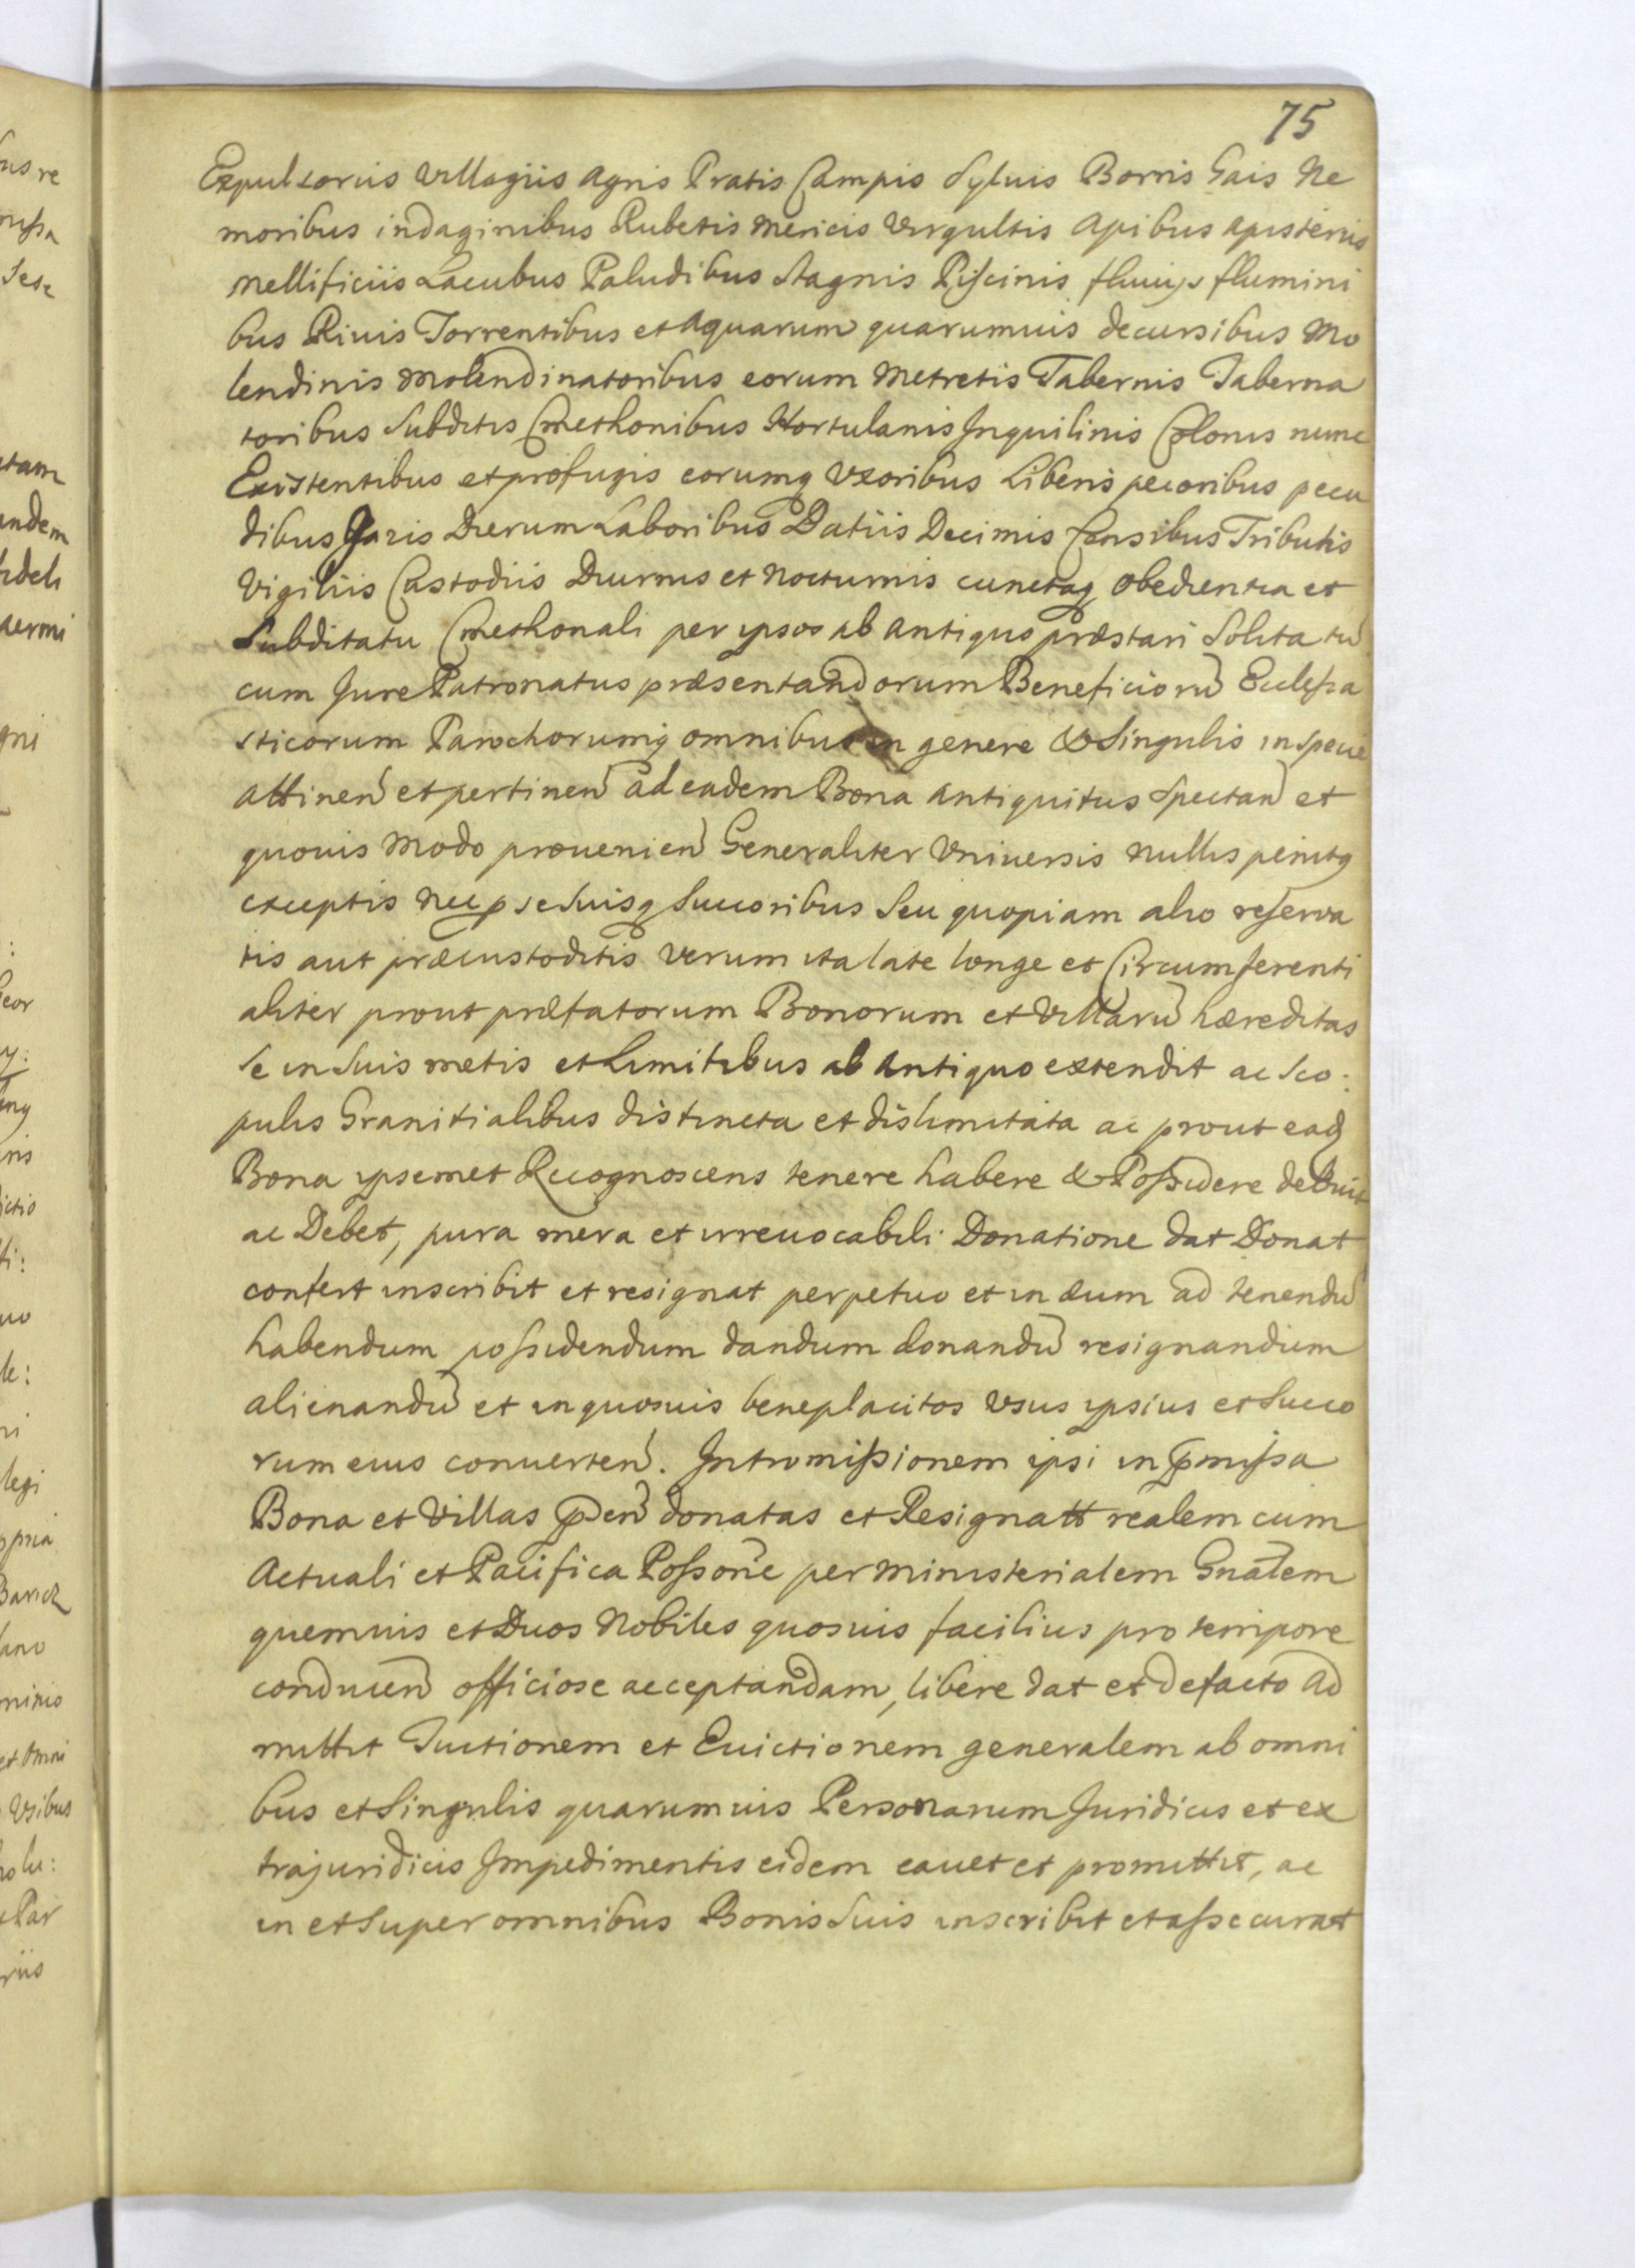 75
Expultoriis Villagiis Agris Pratis Campis Syluis Borris Gais Ne
moribus indaginibus Rubetis Mericis Virgultis Apibus Apisteriis
Mellificiis Lacubus Paludibus Stagnis Piscinis fluuijs flumini
bus Riuis Torrentibus et Aquarum quarumuis decursibus Mo
lendinis Molendinatoribus eorum Metretis Tabernis Taberna
toribus Subditis Cmethonibus Hortulanis Inquilinis Colonis nunc
Existentibus et profugis eorumq Vxoribus Liberis pecoribus pecu
dibus Dierum Laboribus Datiis Decimis Censibus Tributis
Vigiliis Custodiis Diurnis et Nocturnis cunctaq Obedientia et
Subditatu Cmethonali per ipsos ab antiquo præstari Solita tū
cum Jure Patronatus præsentandorum Beneficiorū Ecclesia
sticorum Parochorumq omnibus in genere & Singulis in specie
attinen et pertinen ad eadem Bona antiquitus Spectan et
quouis Modo prouenien Generaliter Vniuersis Nullis penitq
exceptis Nec p se Suisq Succoribus Seu quopiam alio reserva
tis aut præcustoditis Verum ita late longe et Circumferenti
aliter prout præfatorum Bonorum et Villarū hæreditas
Se in Suis metis et Limitibus ab Antiquo extendit ac Sco:
pulis Granitialibus distincta et dislimitata ac prout ead
Bona ipsemet Recognoscens tenere habere & Possidere debuit
ac Debet, pura mera et irreuocabili Donatione dat Donat
confert inscribit et resignat perpetuo et in æum ad tenendū
habendum possidendum dandum donandū resignandum
alienandū et in quosuis beneplacitos Vsus ipsius et Succo
rum eius conuerten. Intromissionem ipsi in pmissa
Bona et Villas pden donatas et Resignatt realem cum
Actuali et Pacifica Possone per Ministerialem Gnalem
quemuis et Duos Nobiles quosuis facilius pro tempore
conducen officiose acceptandam, libere dat et de facto ad
mittit Tuitionem et Euictionem generalem ab omni
bus et Singulis quarumuis Personarum Juridicis et ex
trajuridicis Impedimentis eidem cauet et promittit, ac
in et Super omnibus Bonis Suis inscribit et assecurat